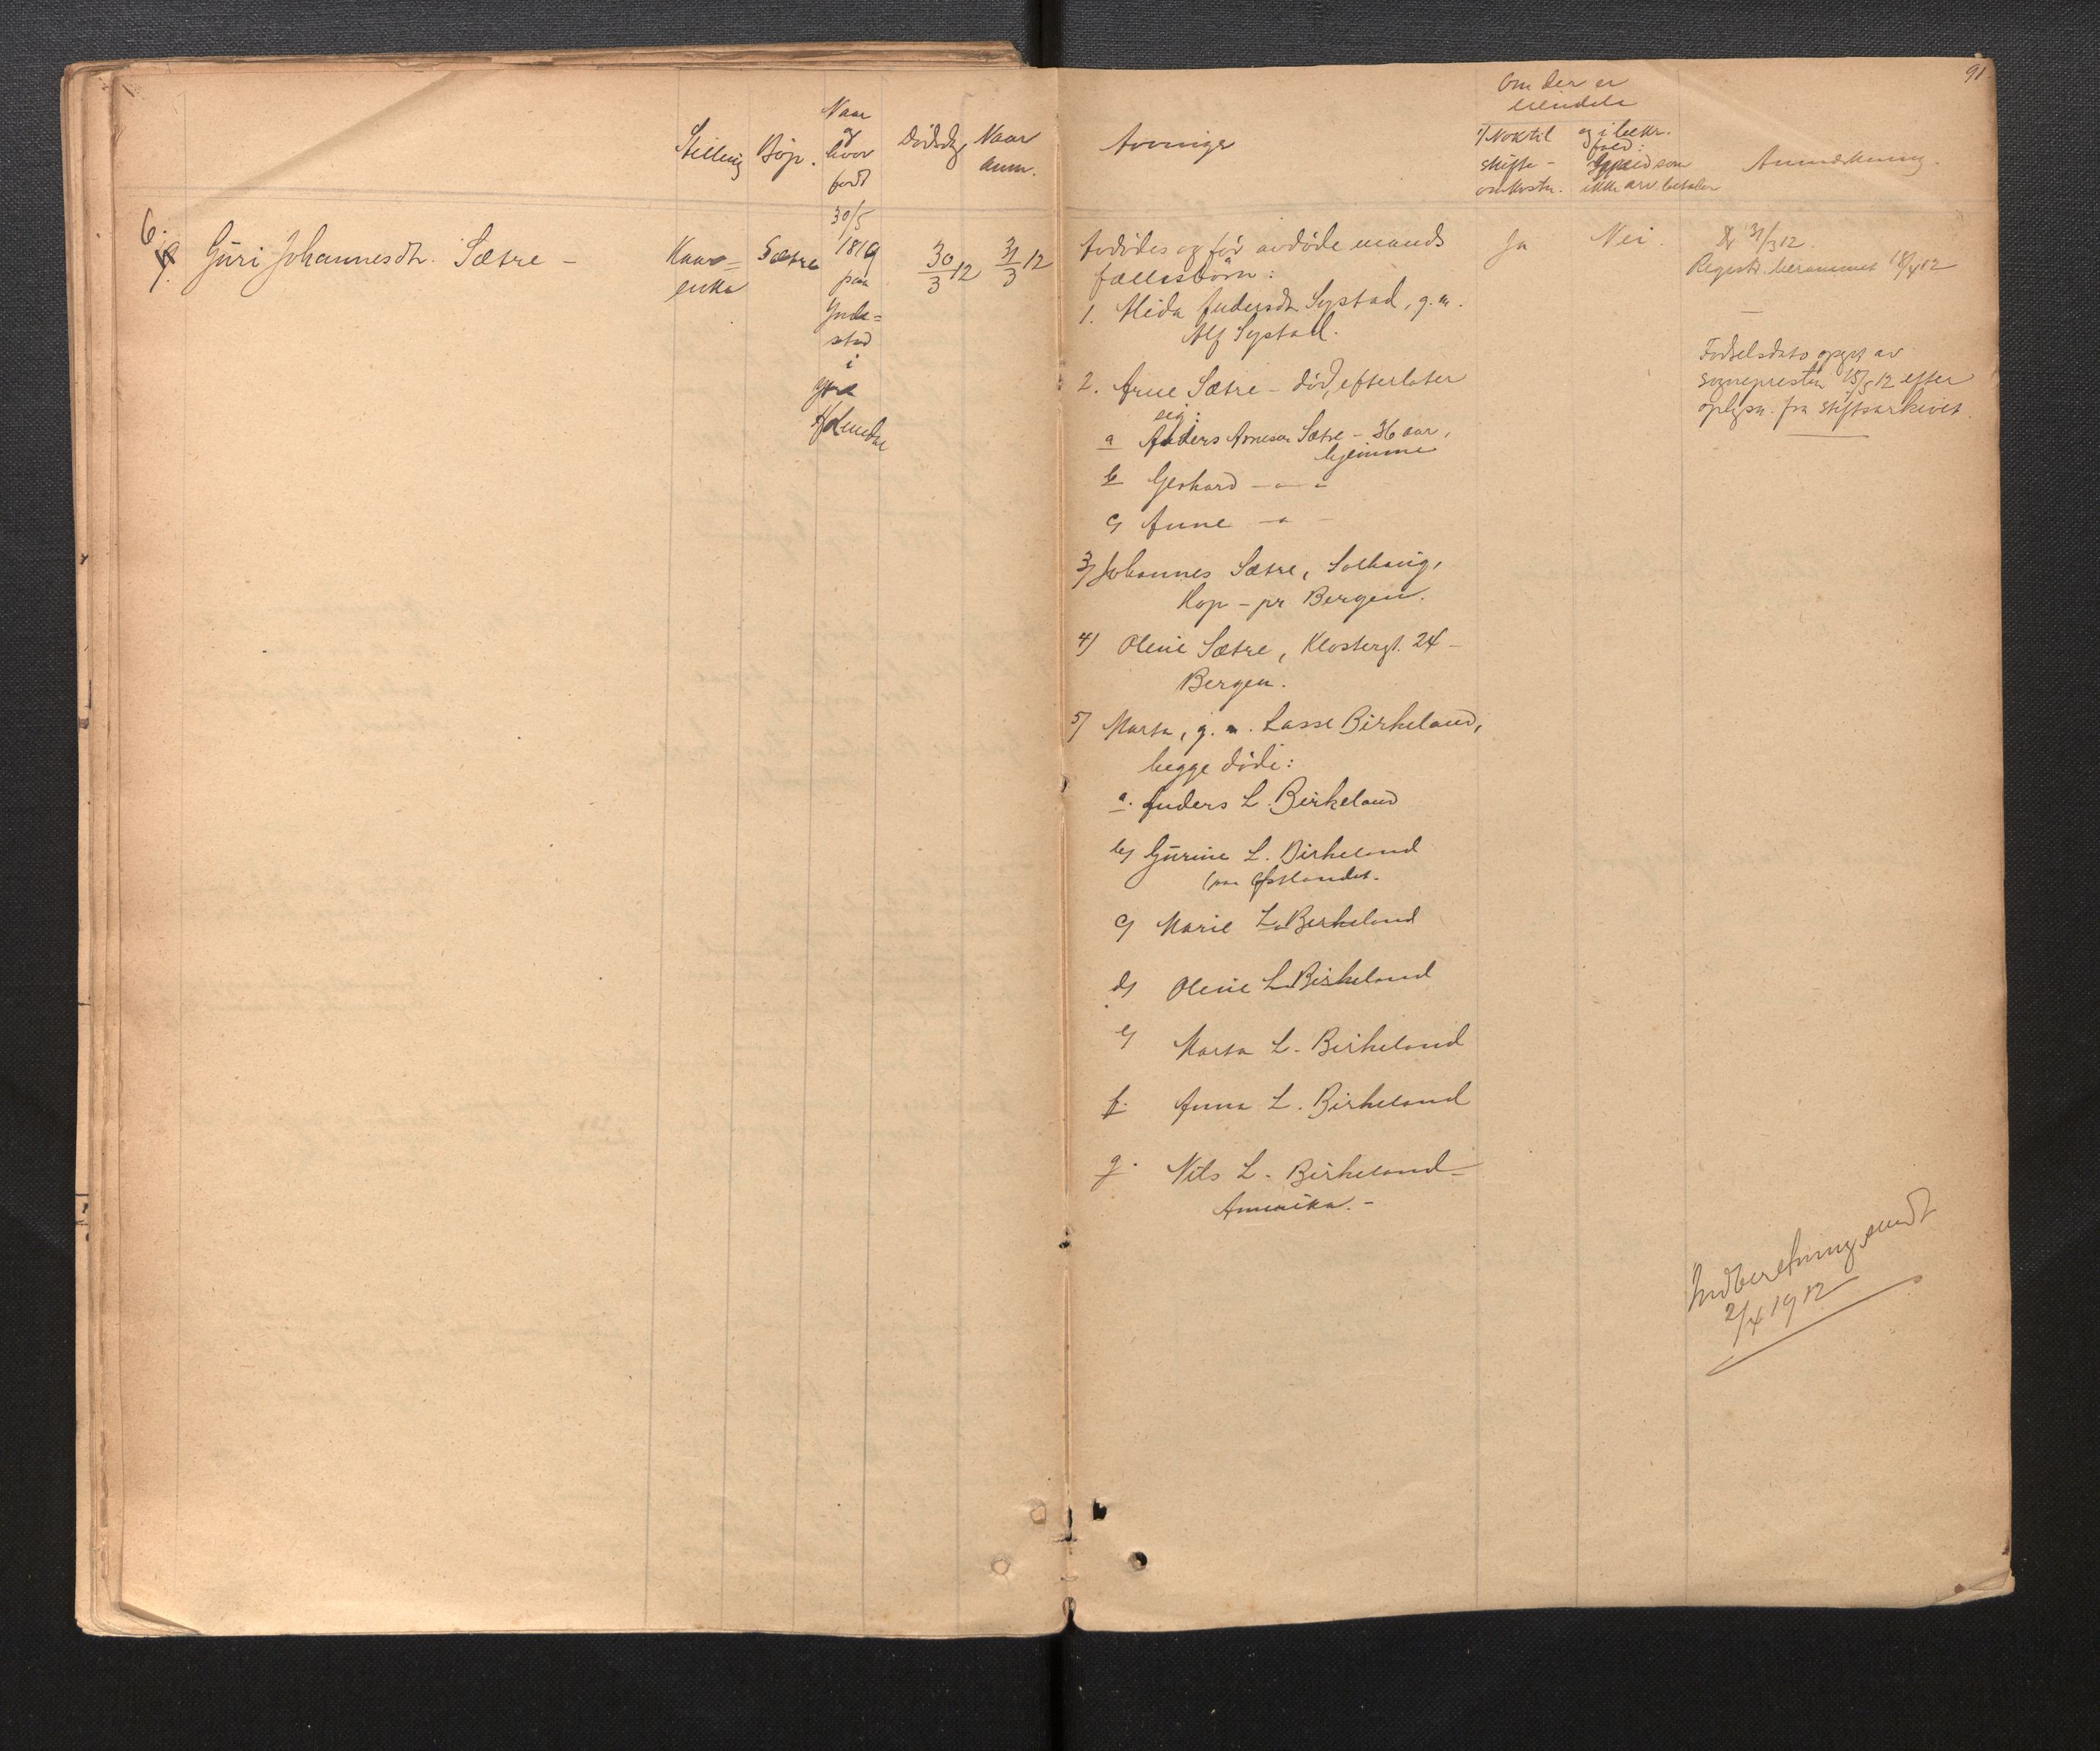 91
Stilling
Bop.
Naar
og
hvor
født
Dødsdg
Naar
anm.
Arvinger
Om der er
eiendele
1/ Nok til
skifte-
omkostn.
og i bekr.
fald:
som
ikke arv. betaler
Anmerkning.
6.
9.
Guri Johannesdtr. Sætre -
Kaar=
enke
Sætre
30/5
1819
paa
Inde=
stad
i
ytre
Holmedal
30/3 12
31/3 12
Avdødes og før avdøde mands
fællesbørn:
1. Andersdtr Systad, g. m.
Alf Systad.
2. Arne Sætre - død, efterlater
sig:
a Anders Arnesen Sætre - 36 aar,
hjemme
b Gerhard — " — "
c) Anne — " —
3) Johannes Sætre, Solhaug,
Hop - pr Bergen.
4) Oline Sætre, Klostergt. 24 -
Bergen.
5) Marta, g. m. Lasse Birkeland,
begge døde:
a. Anders L. Birkeland
b) Gurine L. Birkeland
(paa Østlandet.
c) Marie L. Birkeland
d) Oline L. Birkeland
e) Marta L. Birkeland
f. Anna L. Birkeland
g. Nils L. Birkeland -
Amerika. -
Ja
Nei.
31/3 12.
Registr. berammet 18/4 12
Fødselsdato opgt av
sognepresten 15/5 12 efter
oplysn. fra stiftsarkivet.
Indberetning sendt
2/4 1912